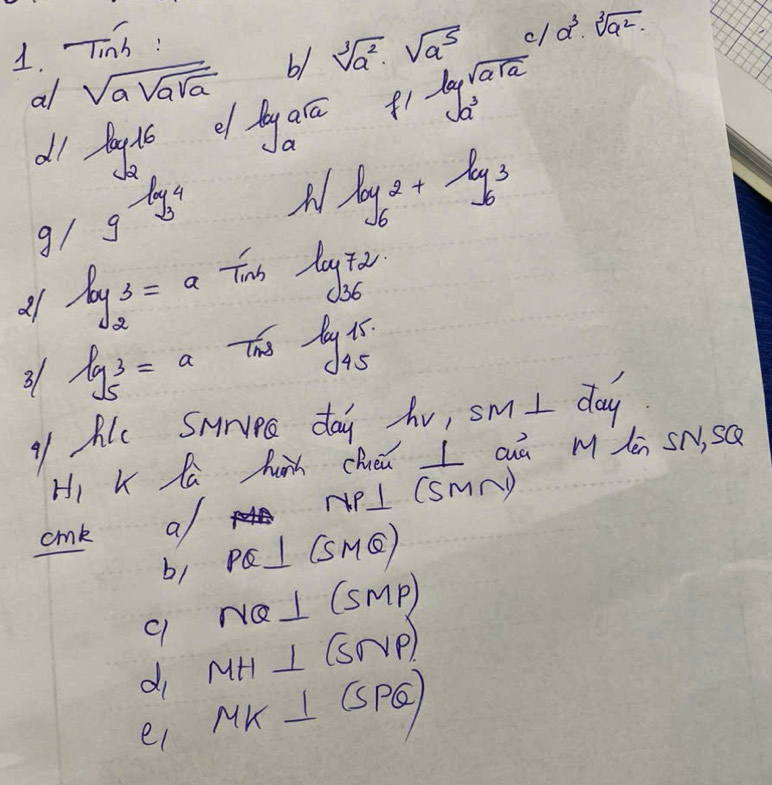 1. Tính :
a/ √(a√(a√a)) b/ ∛a² . √a⁵ c/ a³ . ∛a² .
d/ log₂16 e/ logₐa√a f/ log_{a³}√(a√a)
g/ 9^{log₃4} h/ log₆2 + log₆3
2/ log₂3 = a Tính log₃₆72.
3/ log₅3 = a Tính log₄₅15.
4/ h/c SMNPQ đáy hv, SM ⊥ đáy.
H, K là hình chiếu ⊥ của M lên SN, SQ
cmk a/ NP ⊥ (SMN)
b, PQ ⊥ (SMQ)
c, NQ ⊥ (SMP)
d, MH ⊥ (SNP)
e, MK ⊥ (SPQ)